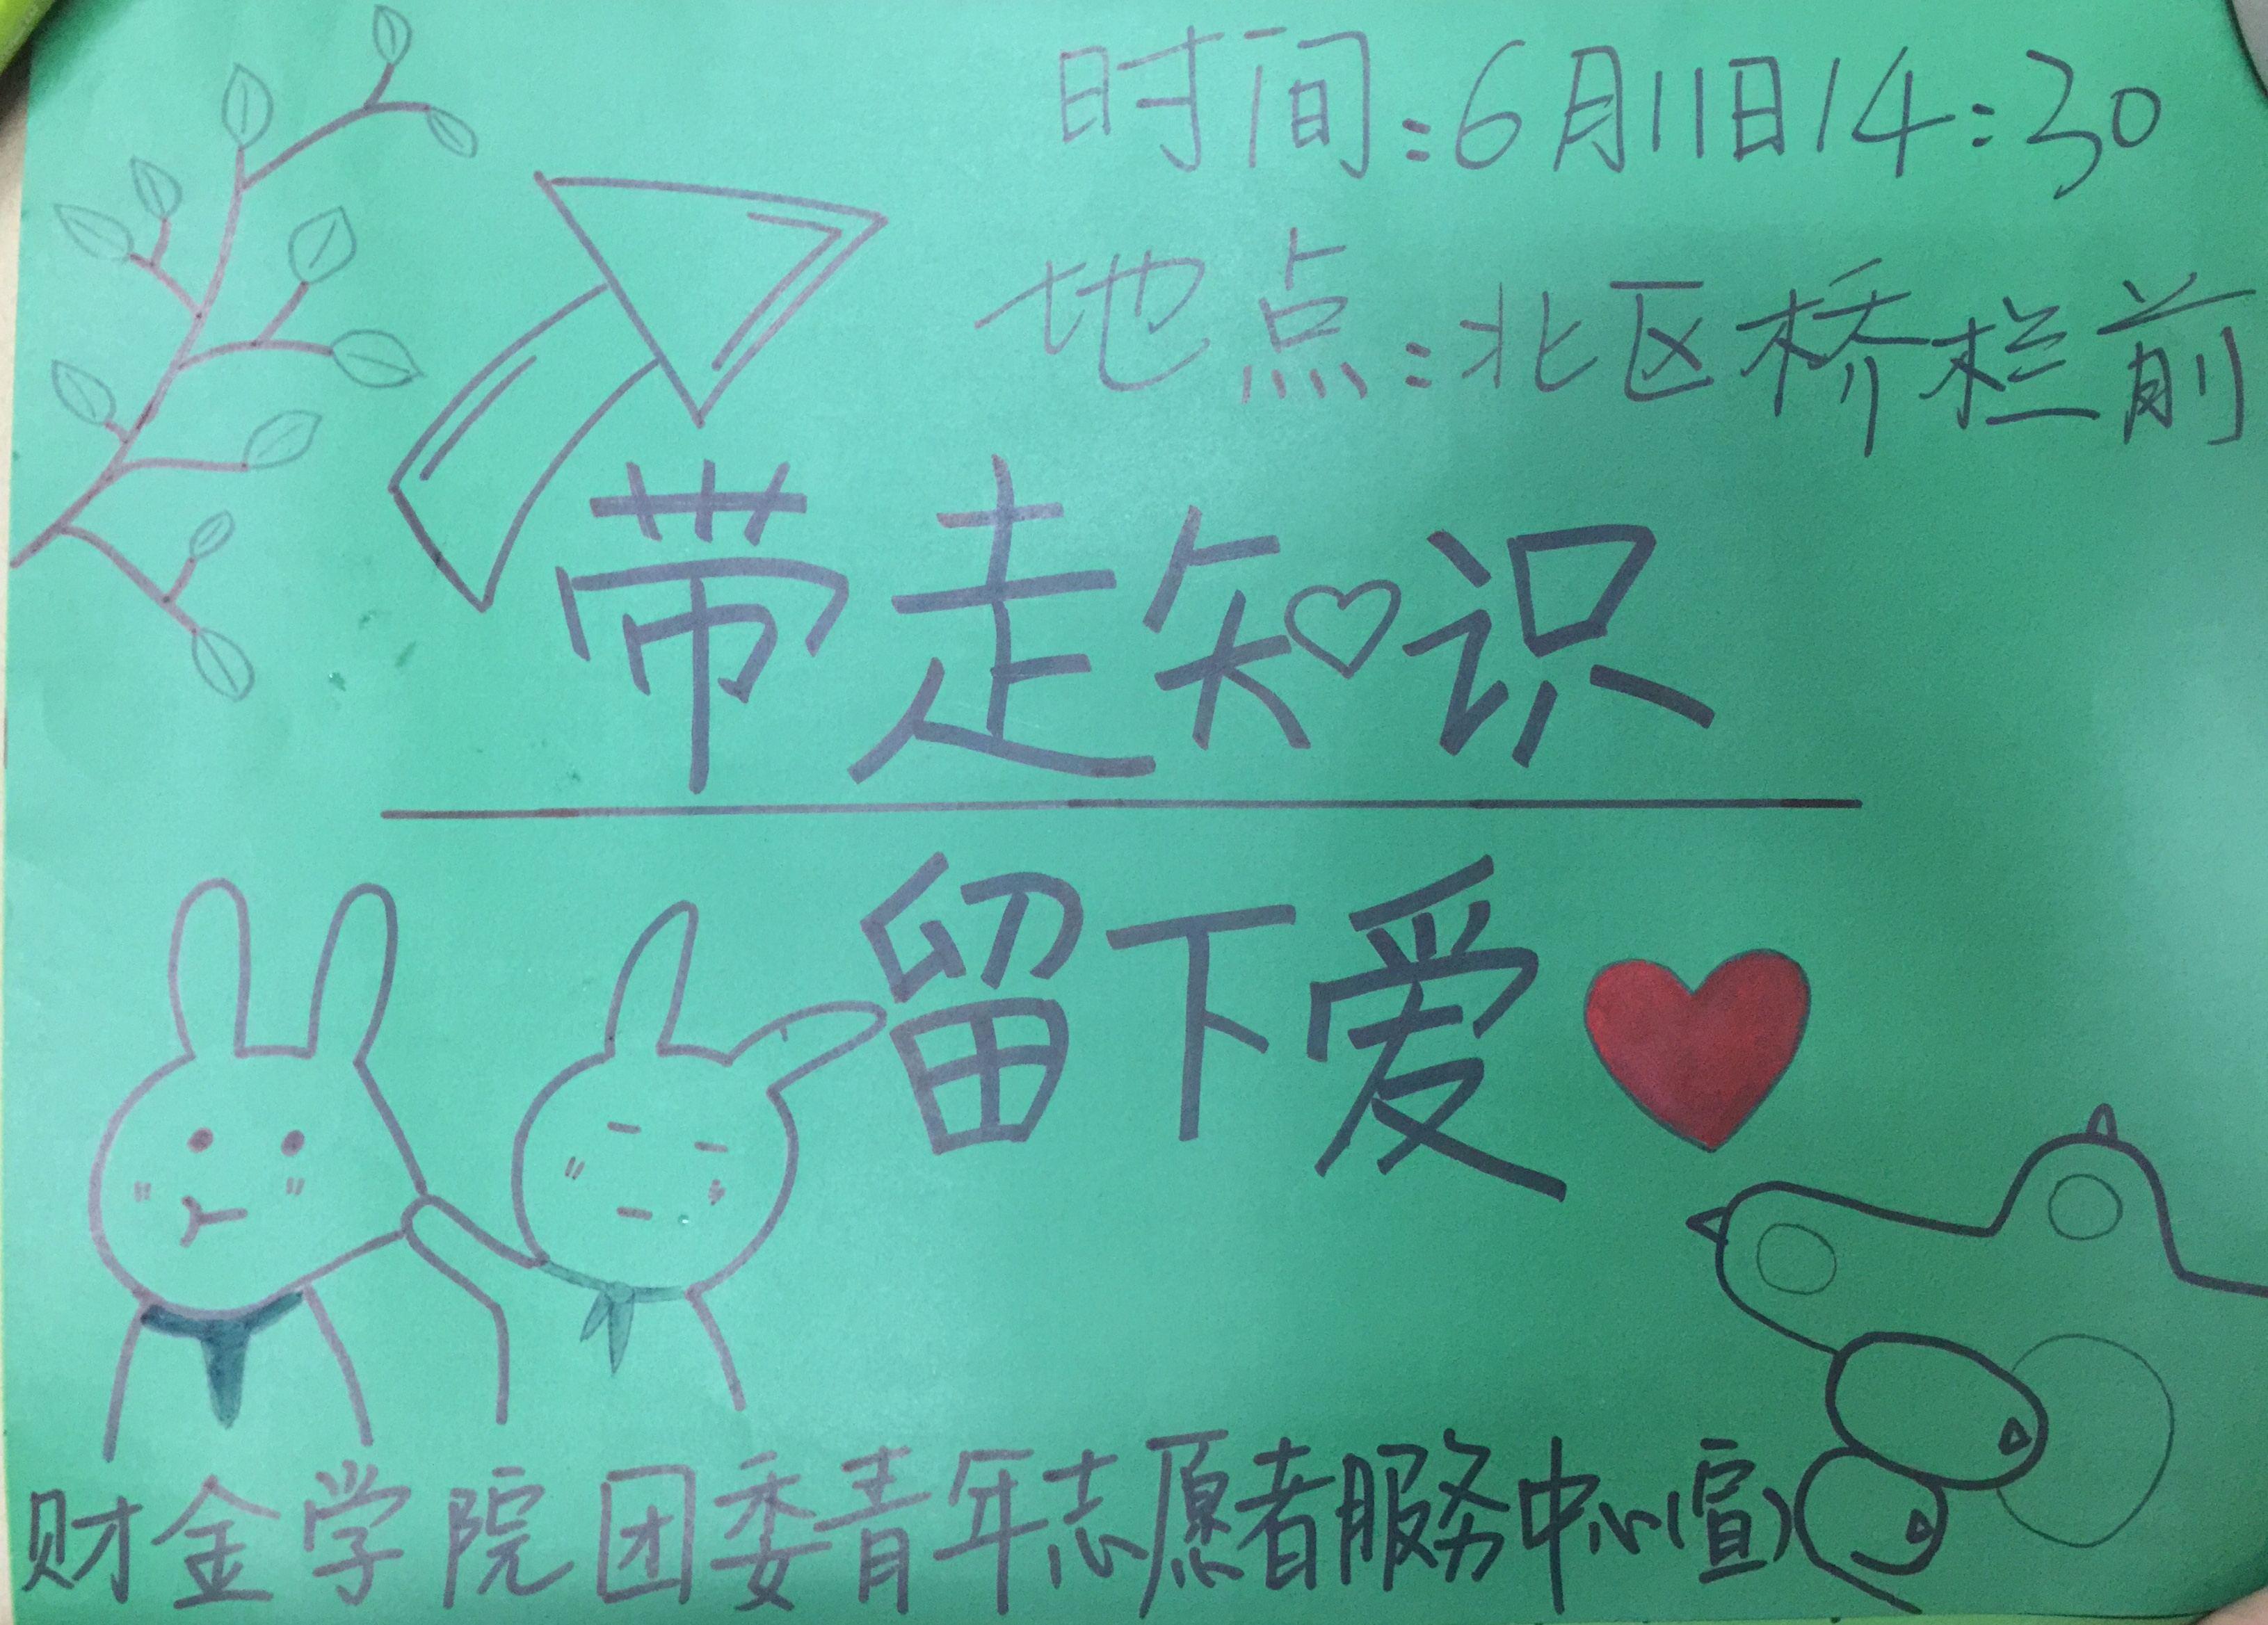 时间:6月11日14:30
地点:北区桥栏前
带走知识
留下爱
财金学院团委青年志愿者服务中心(宣)